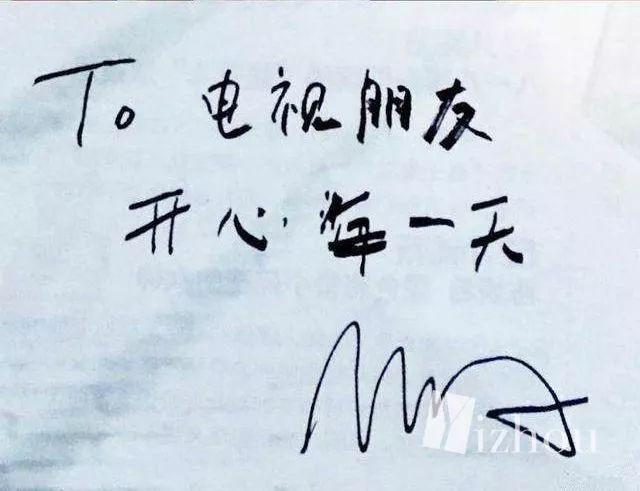 To 电视朋友
开心每一天
Yizhou